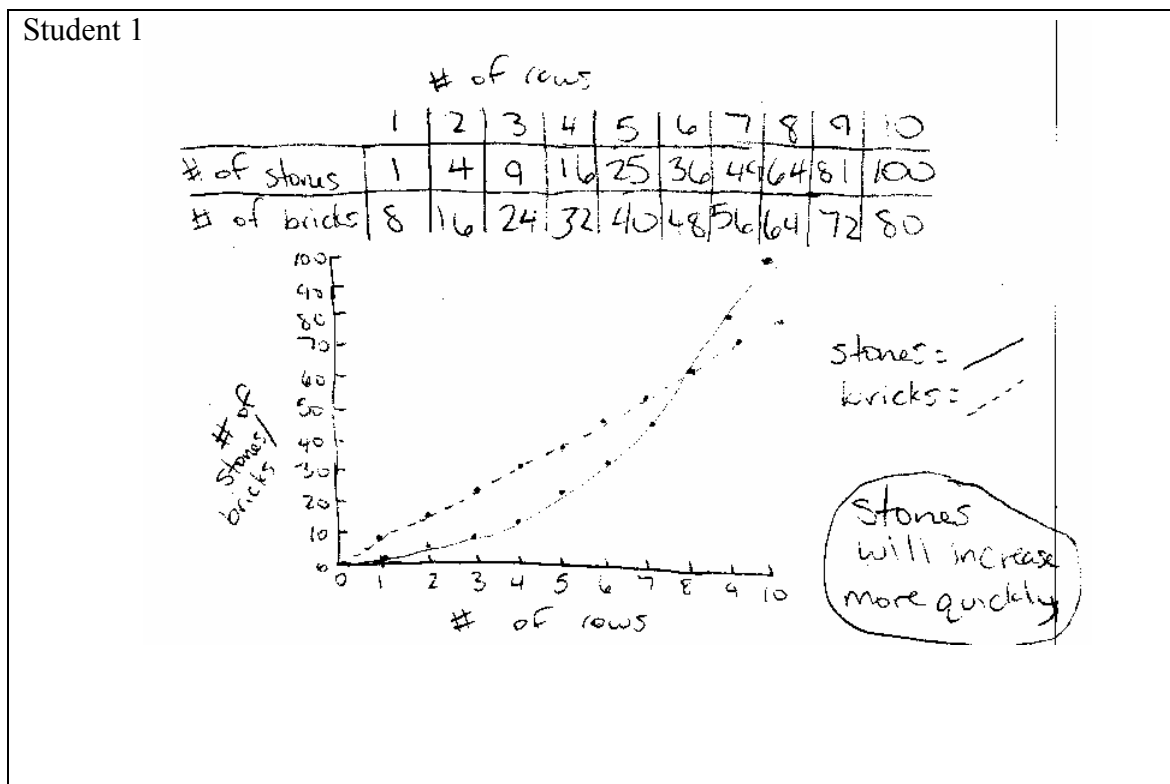 Student 1
# of rows
1 2 3 4 5 6 7 8 9 10
# of stones 1 4 9 16 25 36 49 64 81 100
# of bricks 8 16 24 32 40 48 56 64 72 80
100
90
80
70
60
50
40
30
20
10
0
# of
stones/
bricks
0 1 2 3 4 5 6 7 8 9 10
# of rows
stones =
bricks =
Stones
will increase
more quickly